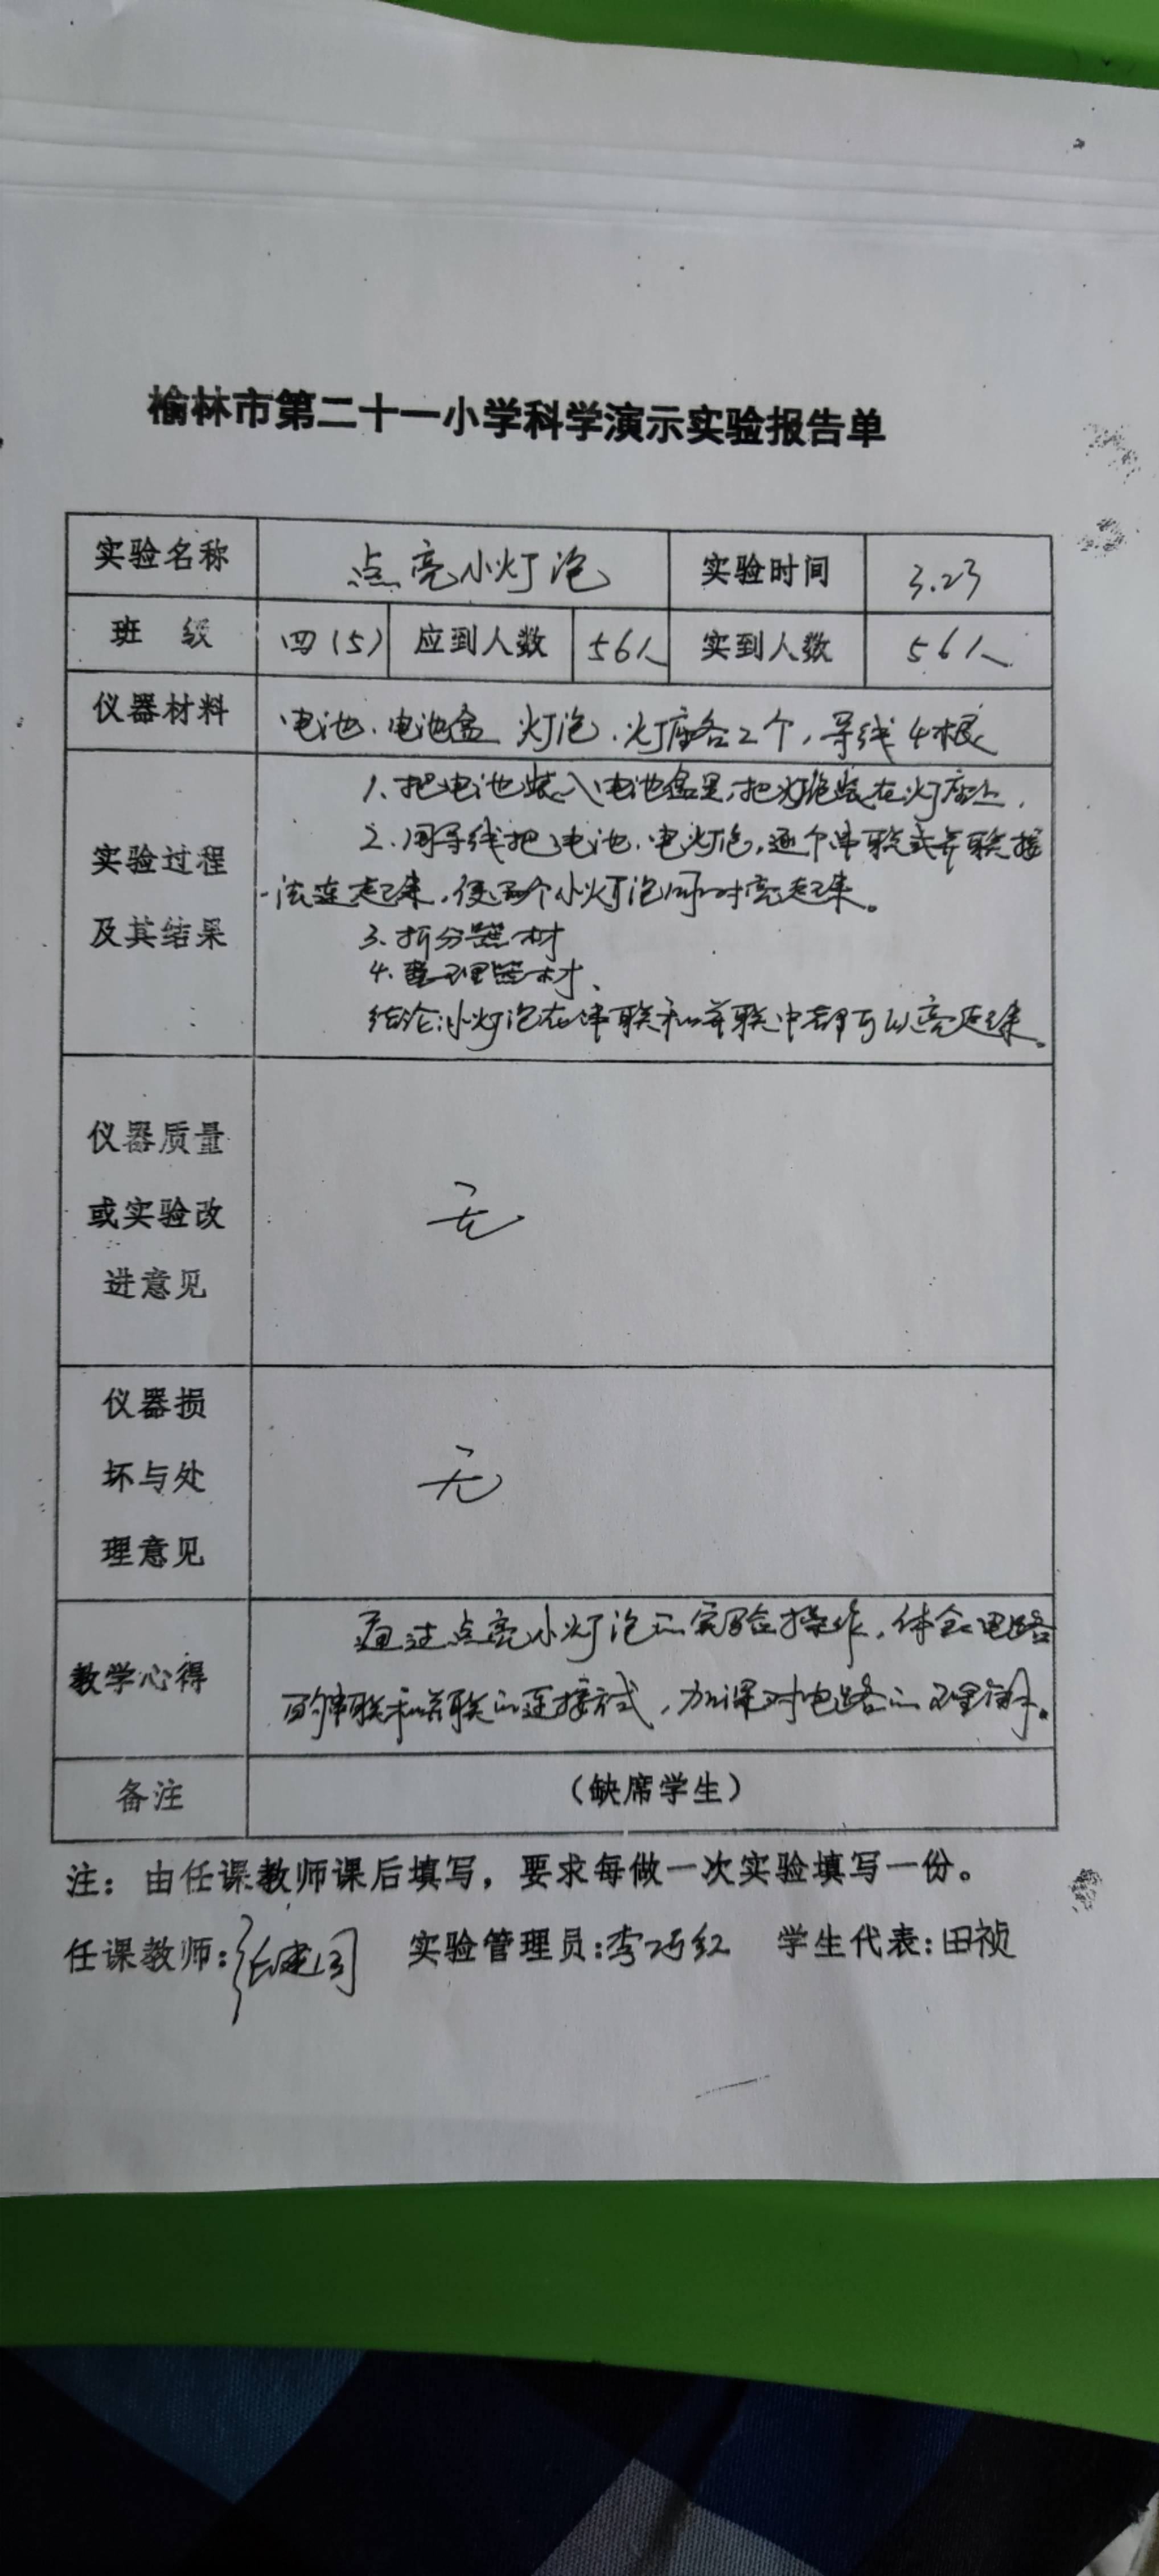 榆林市第二十一小学科学演示实验报告单
实验名称 点亮小灯泡 实验时间 3.23
班 级 四(5) 应到人数 56人 实到人数 56人
仪器材料 电池、电池盒 灯泡、灯座各2个,导线4根
实验过程
及其结果
1、把电池装入电池盒里,把灯泡装在灯座上,
2、用导线把电池、电灯泡,逐个串联或并联接
法连起来,使两个小灯泡同时亮起来。
3、拆分器材
4、整理器材、
结论:小灯泡在串联和并联中都可以亮起来。
仪器质量
或实验改
进意见
无
仪器损
坏与处
理意见
无
教学心得
通过点亮小灯泡的实验操作,体会电路
的串联和并联的连接方式,加深对电路的理解。
备注 (缺席学生)
注:由任课教师课后填写,要求每做一次实验填写一份。
任课教师:张建 实验管理员:李巧红 学生代表:田祯